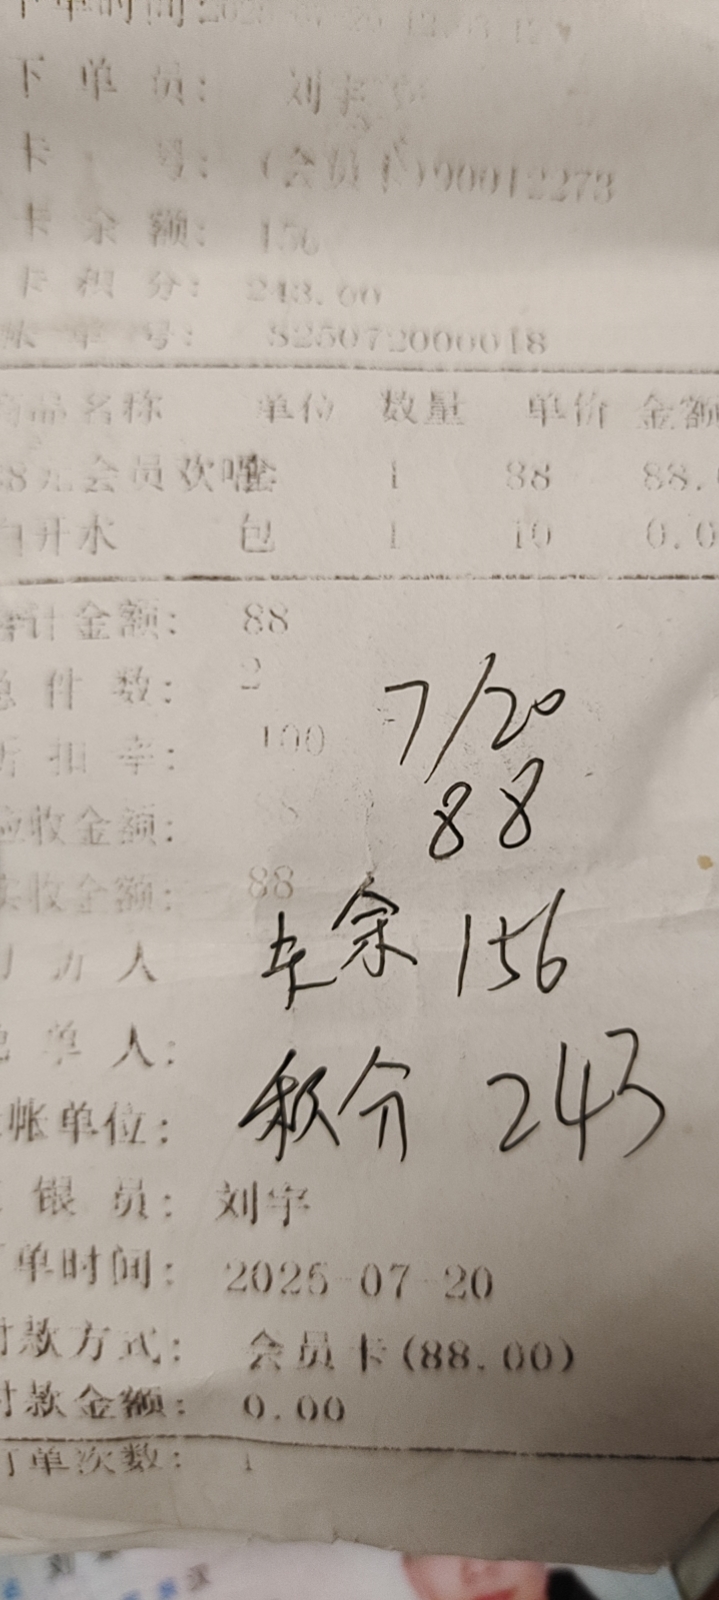 下单时间:2025-07-20
下 单 员: 刘宇
卡 号: (会员卡)90012273
卡 余 额: 156
卡 积 分: 243.00
账 单 号: S25072000018
商品名称 单位 数量 单价 金额
88元会员欢唱套 1 88 88.
白开水 包 1 10 0.0
合计金额: 88
总 件 数: 2
折 扣 率: 100
应收金额: 88
实收金额: 88
7/20
88
卡余 156
积分 243
人
单 人:
账单位:
银 员: 刘宇
单时间: 2025-07-20
付款方式: 会员卡(88.00)
付款金额: 0.00
打单次数: 1